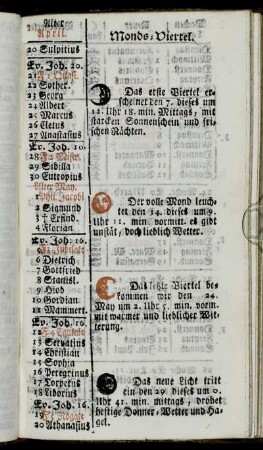 Alter
April.
20 Sulpitius
Ev. Joh. 20.
22 Sother.
23 Georg
24 Albert
25 Marcus
26 Cletus
27 Anastasius
Ev. Joh. 10.
29 Sibilla
30 Eutropius
Alter May.
1 Phil. Jacobi
2 Sigmund
3 † Erfind.
4 Florian
Ev. Joh. 16.
6 Dietrich
7 Gottfried
8 Stanisl.
9 Hiob
10 Gordian
11 Mammert.
Ev. Joh. 16.
12 F4 Cantate
13 Servatius
14 Christian
15 Sophia
16 Peregrinus
17 Torpetus
18 Liborius
Ev. Joh. 16.
19 F5 Rogate
20 Athanasius
Monds-Viertel.
Das erste Viertel er-
scheinet den 7. dieses um
12. Uhr 18. min. Mittags, mit
starcken Sonnenschein und fri-
schen Nächten.
Der volle Mond leuch-
tet den 14. dieses um 9.
Uhr 11. min. vormit. es gibt
unstät, doch lieblich Wetter.
Das letzte Viertel be-
kommen wir den 24.
May um 2. Uhr 5. min. vorm.
mit warmer und lieblicher Wit-
terung.
Das neue Licht tritt
ein den 29 dieses um 0.
Uhr 41. min. mittags, drohet
heftige Donner-Wetter und Ha-
gel.